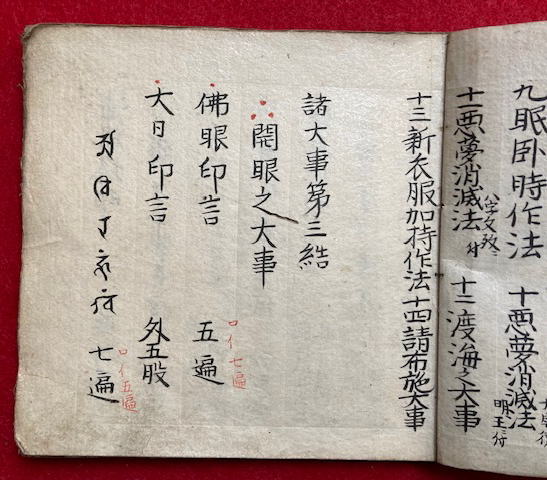 九眠卧時作法 十悪夢消滅法
十一悪夢消滅法 十二渡海之大事
十三新衣服加持作法十四請布施大事
諸大事第三結
開眼之大事
佛眼印言 五遍
七遍
大日印言 外五股
七遍
五遍